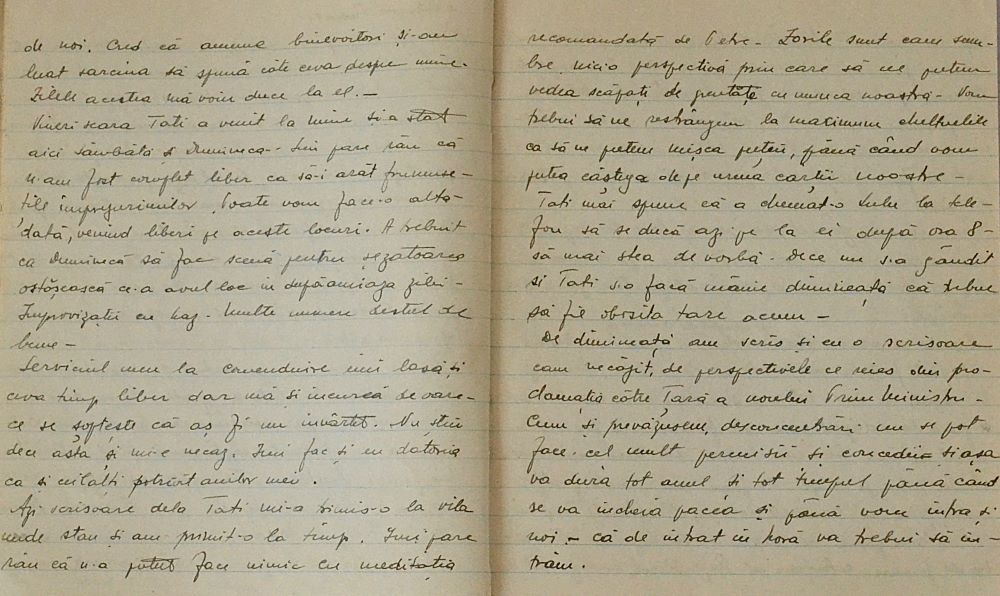 de noi. Cred că anume binevoitori și-au
luat sarcina să spună câte ceva despre mine.
Zilele acestea mă voiu duce la el. —
Vineri seara Tati a venit la mine și a stat
aici sâmbătă și Duminica. Îmi pare rău că
n-am fost complet liber ca să-i arăt frumuse-
țile împrejurimilor. Poate vom face-o altă-
dată, venind liberi pe aceste locuri. A trebuit
ca Duminică să fac scenă pentru șezătoarea
ostășească ce-a avut loc în după amiaza zilei -
Improvizații cu haz. Multe numere destul de
bune —
Serviciul meu la comenduire îmi lasă și
ceva timp liber dar mă și încurcă de oare-
ce se șoptește că aș fi un învârtit. Nu știu
dece asta și mi-e necaz. Îmi fac și eu datoria
ca și ceilalți potrivit anilor mei.
Azi scrisoare dela Tati mi-a trimis-o la vila
unde stau și am primit-o la timp. Îmi pare
rău că n-a putut face nimic cu meditația
recomandată de Petre - Zorile sunt cam som-
bre, nicio perspectivă prin care să ne putem
vedea scăpați de greutăți cu munca noastră. Vom
trebui să ne restrângem la maximum cheltuelile
ca să ne putem mișca puțin, până când vom
putea câștiga de pe urma cărții noastre -
Tati mai spune că a chemat-o Lulu la tele-
fon să se ducă azi pe la ei după ora 8 -
să mai stea de vorbă. Dece nu s-a gândit
și Tati s-o facă mâine dimineață că trebue
să fie obosita tare acum —
De dimineață am scris și eu o scrisoare
cam necăjit, de perspectivele ce reies din pro-
clamația către Țară a noului Prim Ministru.
Cum și prevăzusem, desconcentrări nu se pot
face. cel mult permisii și concedii și așa
va dura tot anul și tot timpul până când
se va încheia pacea și până vom intra și
noi - că de intrat în horă va trebui să in-
trăm.